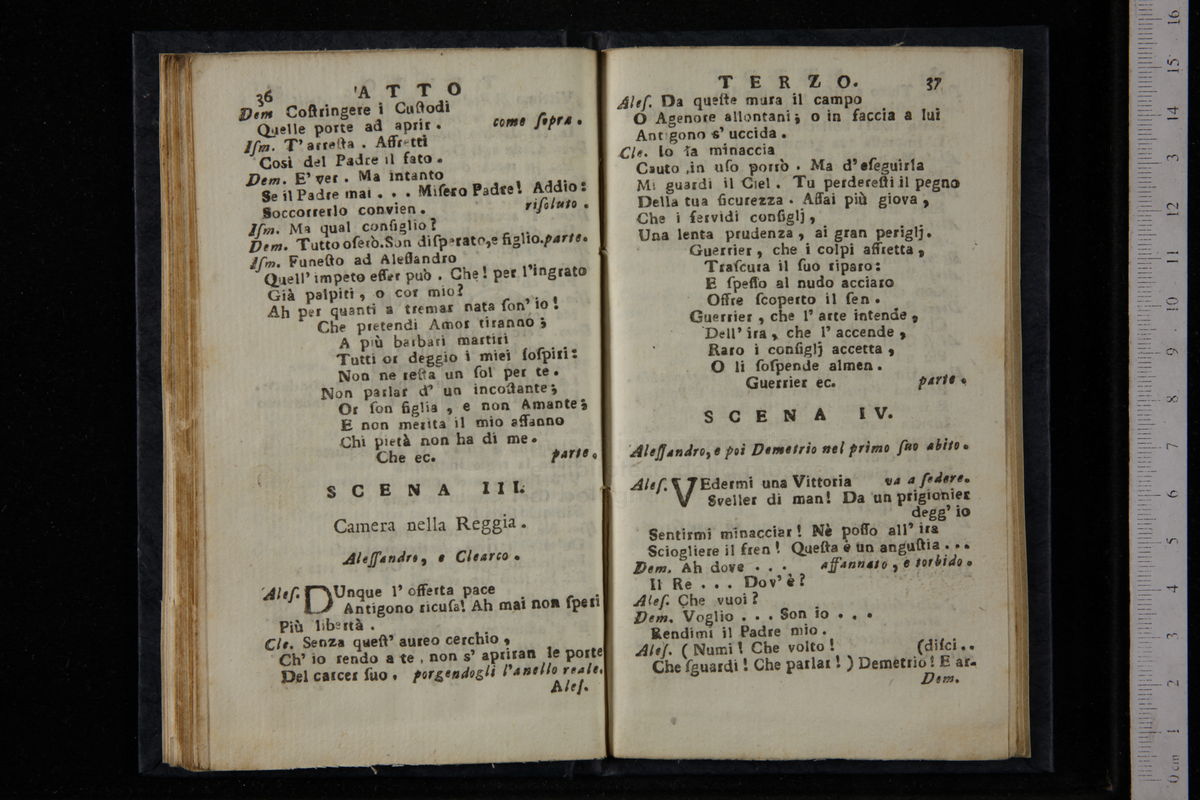 36 ATTO
Dem Coſtringere i Cuſtodi
Quelle porte ad aprir. come ſopra.
Iſm. T'arreſta. Affretti
Così del Padre il fato.
Dem. E' ver. Ma intanto
Se il Padre mai... Miſero Padre! Addio:
Soccorrerlo convien. riſoluto.
Iſm. Ma qual conſiglio?
Dem. Tutto oſerò. Son diſperato, e figlio. parte.
Iſm. Funeſto ad Aleſſandro
Quell' impeto eſſer può. Che! per l'ingrato
Già palpiti, o cor mio?
Ah per quanti a tremar nata ſon' io!
Che pretendi Amor tiranno;
A più barbari martiri
Tutti or deggio i miei ſoſpiri:
Non ne reſta un ſol per te.
Non parlar d' un incoſtante;
Or ſon figlia, e non Amante;
E non merita il mio affanno
Chi pietà non ha di me.
Che ec. parte.
SCENA III.
Camera nella Reggia.
Aleſſandro, e Clearco.
Aleſ. DUnque l' offerta pace
Antigono ricuſa! Ah mai non ſperi
Più libertà.
Cle. Senza queſt' aureo cerchio,
Ch' io rendo a te, non s' apriran le porte
Del carcer ſuo. porgendogli l'anello reale.
Aleſ.
TERZO. 37
Aleſ. Da queſte mura il campo
O Agenore allontani; o in faccia a lui
Antigono s' uccida.
Cle. Io la minaccia
Cauto in uſo porrò. Ma d' eſeguirla
Mi guardi il Ciel. Tu perdereſti il pegno
Della tua ſicurezza. Aſſai più giova,
Che i fervidi conſiglj,
Una lenta prudenza, ai gran periglj.
Guerrier, che i colpi affretta,
Traſcura il ſuo riparo:
E ſpeſſo al nudo acciaro
Offre ſcoperto il ſen.
Guerrier, che l' arte intende,
Dell' ira, che l' accende,
Raro i conſiglj accetta,
O li ſoſpende almen.
Guerrier ec. parte.
SCENA IV.
Aleſſandro, e poi Demetrio nel primo ſuo abito.
Aleſ. VEdermi una Vittoria va a ſedere.
Sveller di man! Da un prigionier
degg' io
Sentirmi minacciar! Nè poſſo all' ira
Sciogliere il fren! Queſta è un anguſtia...
Dem. Ah dove... affannato, e torbido.
Il Re... Dov' è?
Aleſ. Che vuoi?
Dem. Voglio... Son io...
Rendimi il Padre mio.
Aleſ. (Numi! Che volto! (diſci..
Che ſguardi! Che parlar!) Demetrio! E ar-
Dem.
16
15
14
13
12
11
10
9
8
7
6
5
4
3
2
1
0 cm